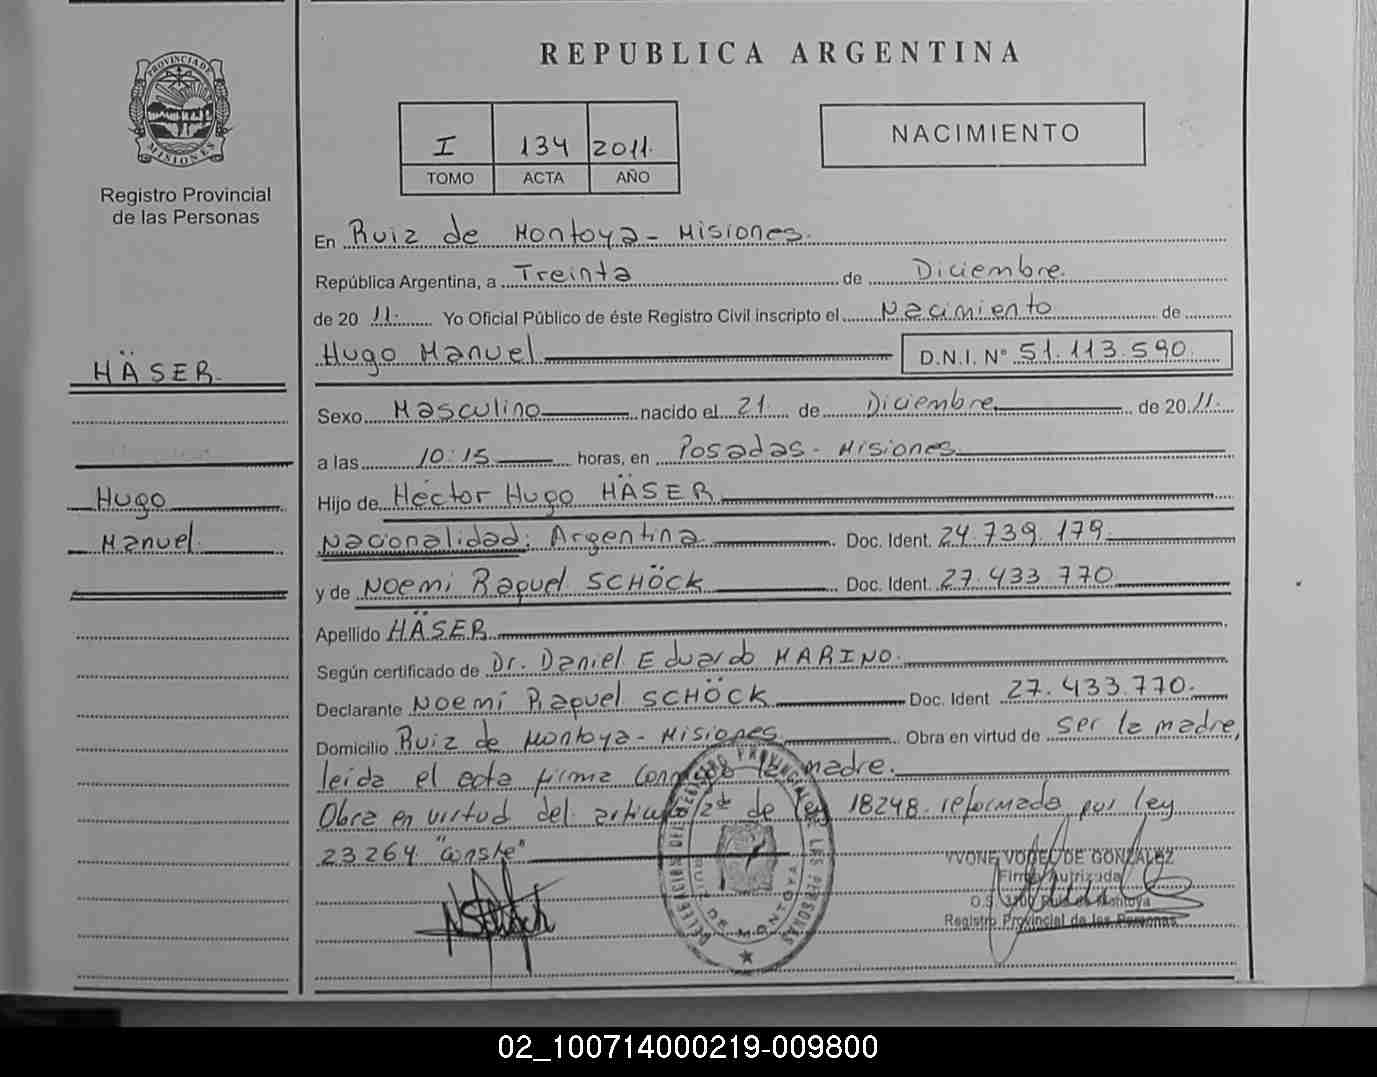 REPUBLICA ARGENTINA
PROVINCIA DE
MISIONES
Registro Provincial
de las Personas
I 134 2011.
TOMO ACTA AÑO
NACIMIENTO
En Ruiz de Montoya - Misiones.
República Argentina, a Treinta de Diciembre.
de 20 11. Yo Oficial Público de éste Registro Civil inscripto el Nacimiento de
Hugo Manuel D.N.I. N° 51.113.590.
HÄSER.
Sexo Masculino nacido el 21 de Diciembre de 20 11.
a las 10:15 horas, en Posadas - Misiones
Hugo
Manuel.
Hijo de Héctor Hugo HÄSER
Nacionalidad: Argentina Doc. Ident. 24.739.179
y de Noemi Raquel SCHÖCK Doc. Ident. 27.433.770
Apellido HÄSER
Según certificado de Dr. Daniel Eduardo MARINO.
Declarante Noemí Raquel SCHÖCK Doc. Ident 27.433.770.
Domicilio Ruiz de Montoya - Misiones Obra en virtud de ser la madre,
leída el acta firma conmigo la madre.
Obra en virtud del articulo 2de de ley 18248. reformada por ley
23264 "conste"
DELEGACION DEL REGISTRO PROVINCIAL DE LAS PERSONAS
RUIZ DE MONTOYA
YVONE VOGEL DE GONZALEZ
Firma Autrizada
Ruiz de Montoya
Registro Provincial de las Personas
02_100714000219-009800